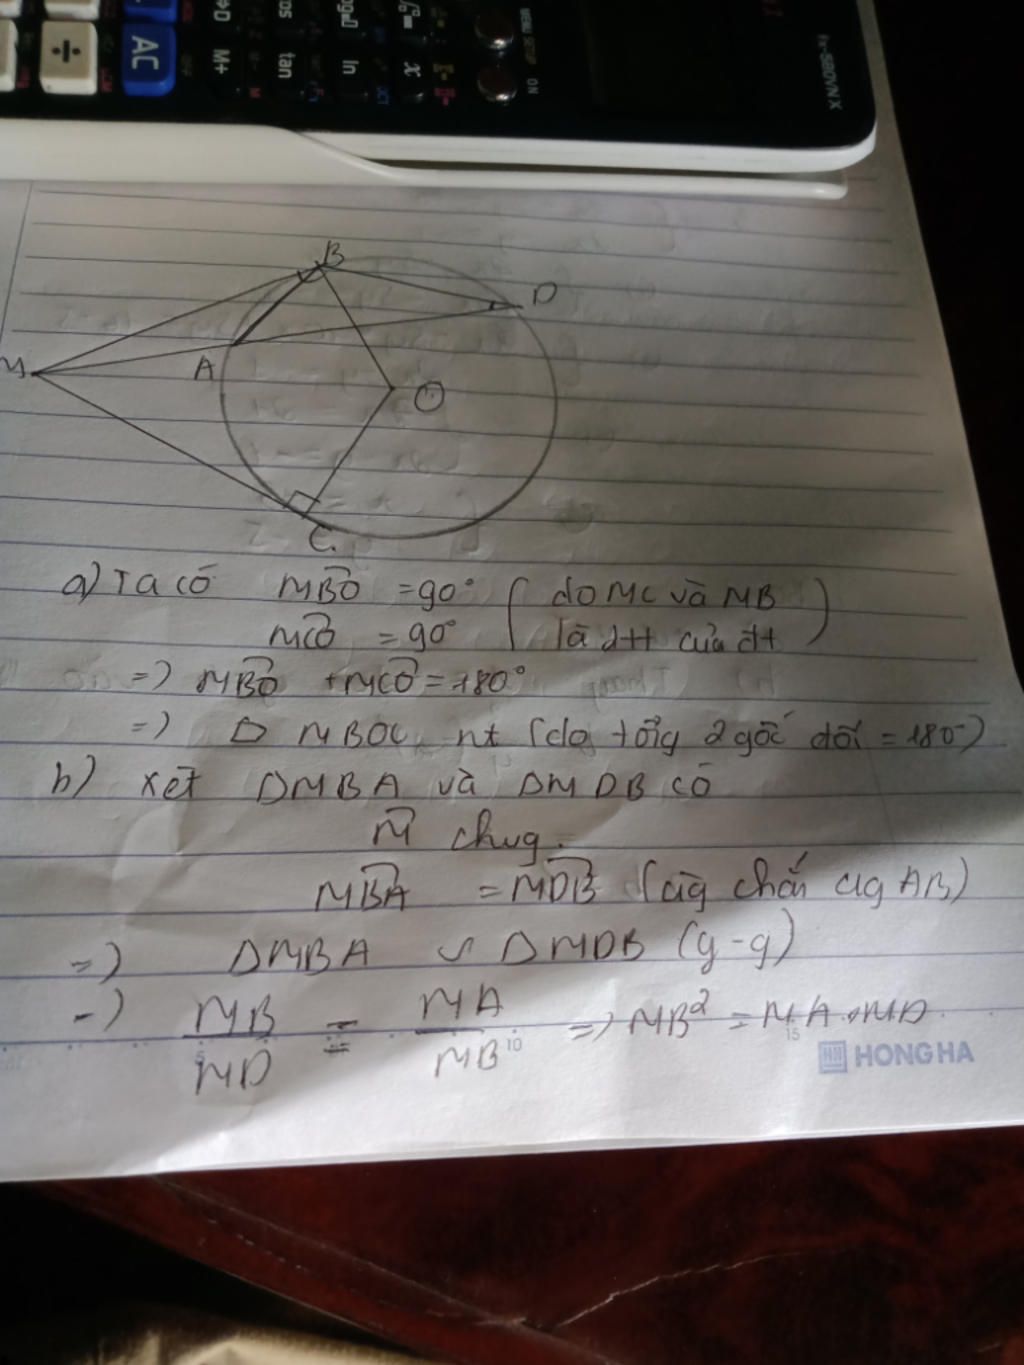 AC
M+
tan
ln
x
MENU SETUP
ON
fx-580VN X
B
D
M
A
O
C.
a) Ta có MBO = 90° ( do MC và MB
MCO = 90° là 2tt của đt )
=) MBO + MCO = 180°
=) MBOC nt (do tổng 2 góc đối = 180°)
b) xét ΔMBA và ΔMDB có
M chug.
MBA = MDB (cùg chắn cug AB)
=) ΔMBA ∽ ΔMDB (g-g)
=) MB/MD = MA/MB =) MB² = MA.MD
5 10 15
HONG HA